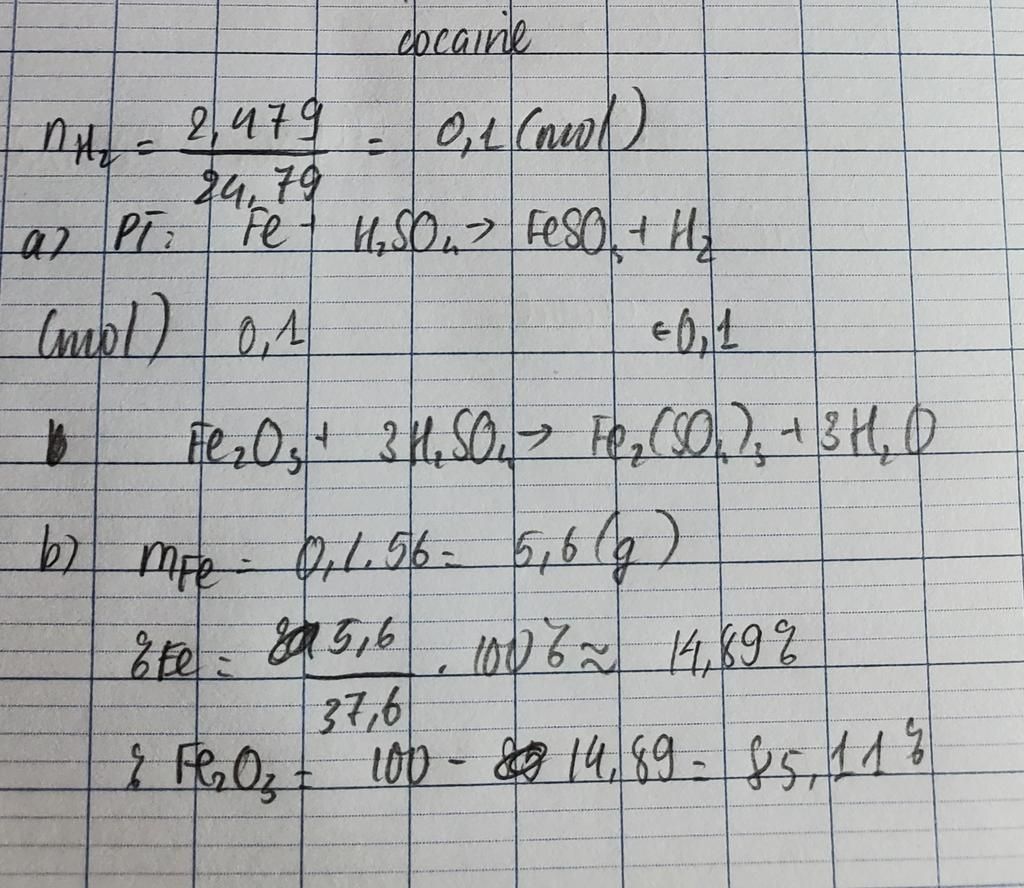 cocaine
nH₂ = 2,479 / 24,79 = 0,1 (mol)
a) PT: Fe + H₂SO₄ → FeSO₄ + H₂
(mol) 0,1 ← 0,1
Fe₂O₃ + 3H₂SO₄ → Fe₂(SO₄)₃ + 3H₂O
b) mFe = 0,1.56 = 5,6 (g)
%Fe = 5,6 / 37,6 . 100% ≈ 14,89%
% Fe₂O₃ = 100 - 14,89 = 85,11%